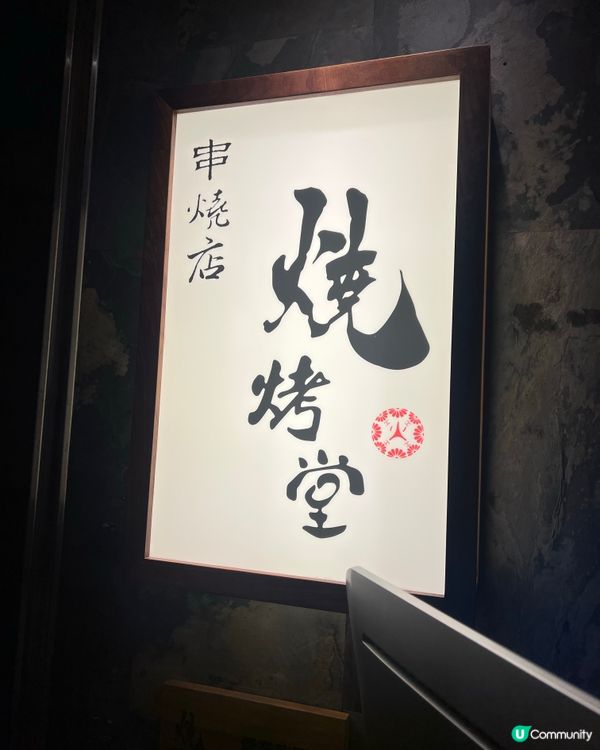 燒烤堂
火
串燒店
U Community